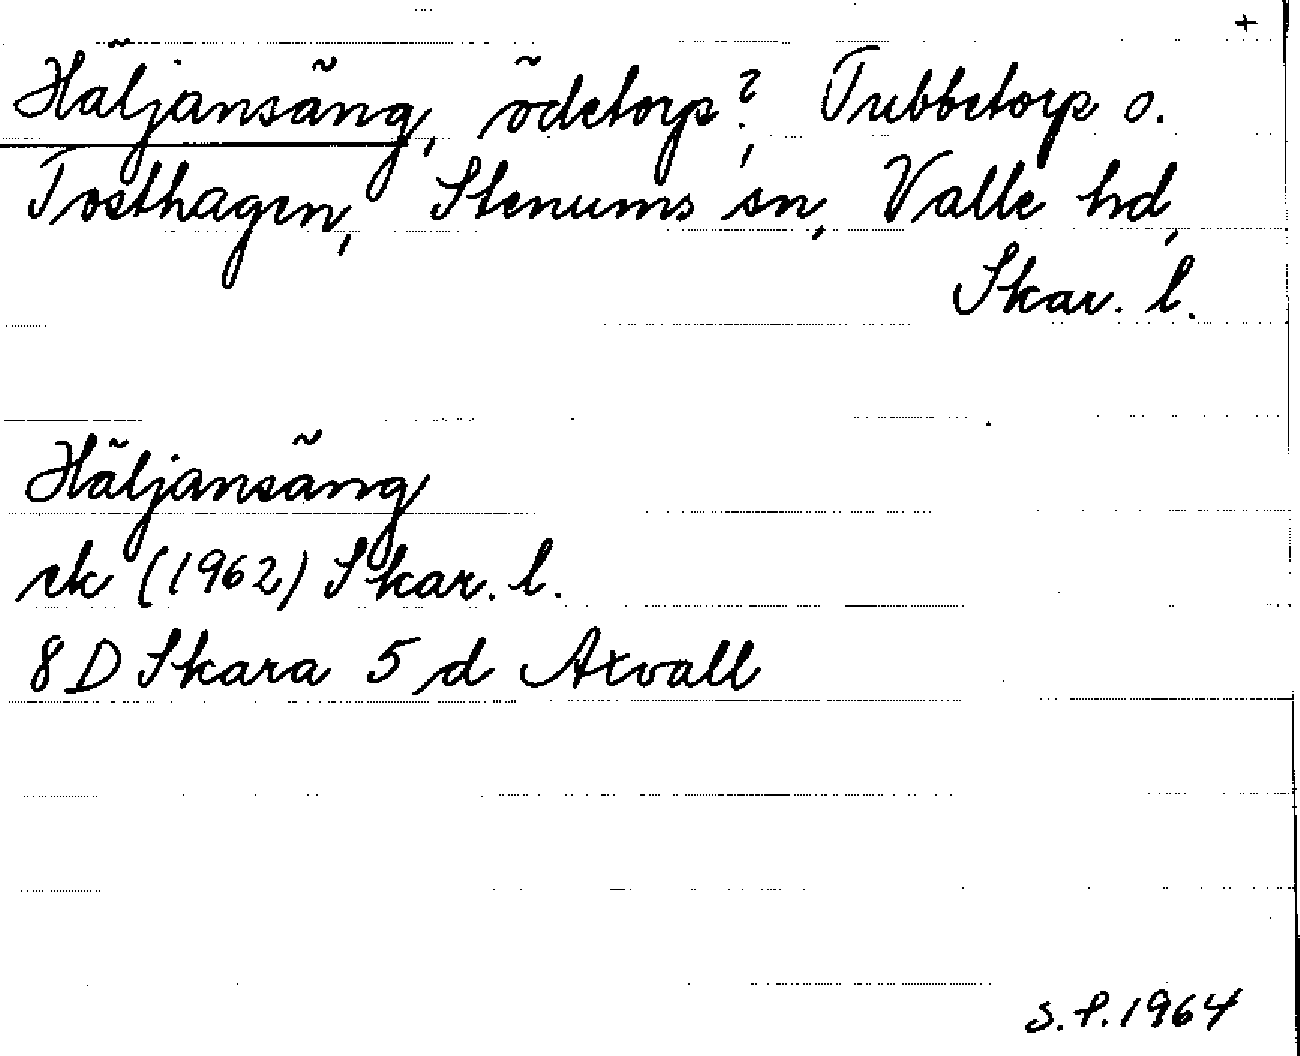 +
Häljansäng, ödetorp?, Tubbetorp o.
Tosthagen, Stenums sn, Valle hd,
Skar. l.
Häljansäng
ek (1962) Skar. l.
8D Skara 5 d Axvall
S.P. 1964